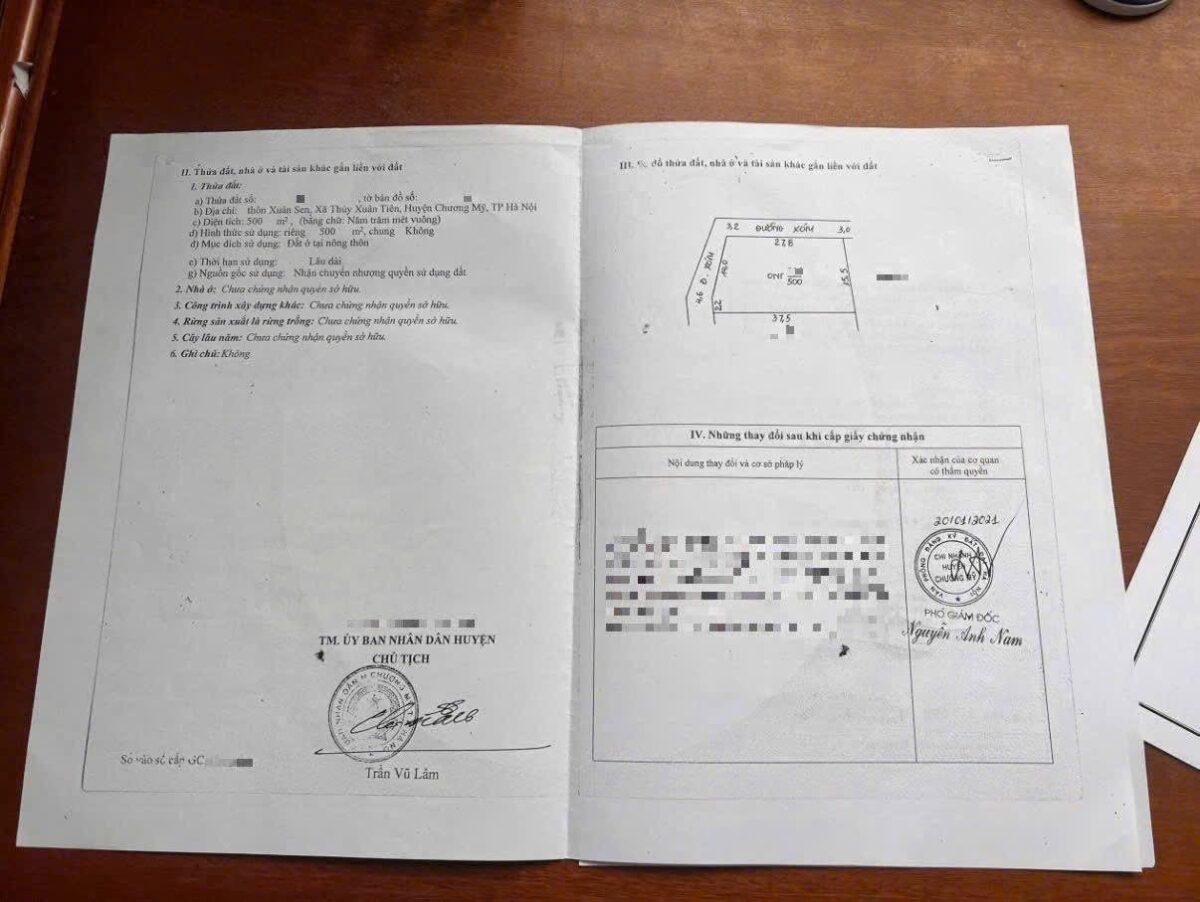 II. Thửa đất, nhà ở và tài sản khác gắn liền với đất
1. Thửa đất:
a) Thửa đất số: , tờ bản đồ số:
b) Địa chỉ: thôn Xuân Sen, Xã Thủy Xuân Tiên, Huyện Chương Mỹ, TP Hà Nội
c) Diện tích: 500 m², (bằng chữ: Năm trăm mét vuông)
d) Hình thức sử dụng: riêng 500 m², chung Không
đ) Mục đích sử dụng: Đất ở tại nông thôn
e) Thời hạn sử dụng: Lâu dài
g) Nguồn gốc sử dụng: Nhận chuyển nhượng quyền sử dụng đất
2. Nhà ở: Chưa chứng nhận quyền sở hữu.
3. Công trình xây dựng khác: Chưa chứng nhận quyền sở hữu.
4. Rừng sản xuất là rừng trồng: Chưa chứng nhận quyền sở hữu.
5. Cây lâu năm: Chưa chứng nhận quyền sở hữu.
6. Ghi chú: Không
TM. ỦY BAN NHÂN DÂN HUYỆN
CHỦ TỊCH
BAN NHÂN DÂN H CHƯƠNG MỸ
Trần Vũ Lâm
Số vào sổ cấp GC
III. đồ thửa đất, nhà ở và tài sản khác gắn liền với đất
3,2 ĐƯỜNG XÓM 3,0
27,8
4,6 Đ. XÓM
14,0
ONT
500
15,5
2,2
37,5
IV. Những thay đổi sau khi cấp giấy chứng nhận
Nội dung thay đổi và cơ sở pháp lý
Xác nhận của cơ quan
có thẩm quyền
20/01/2021
VĂN PHÒNG ĐĂNG KÝ ĐẤT ĐAI HÀ NỘI
CHI NHÁNH
HUYỆN
CHƯƠNG MỸ
PHÓ GIÁM ĐỐC
Nguyễn Anh Nam